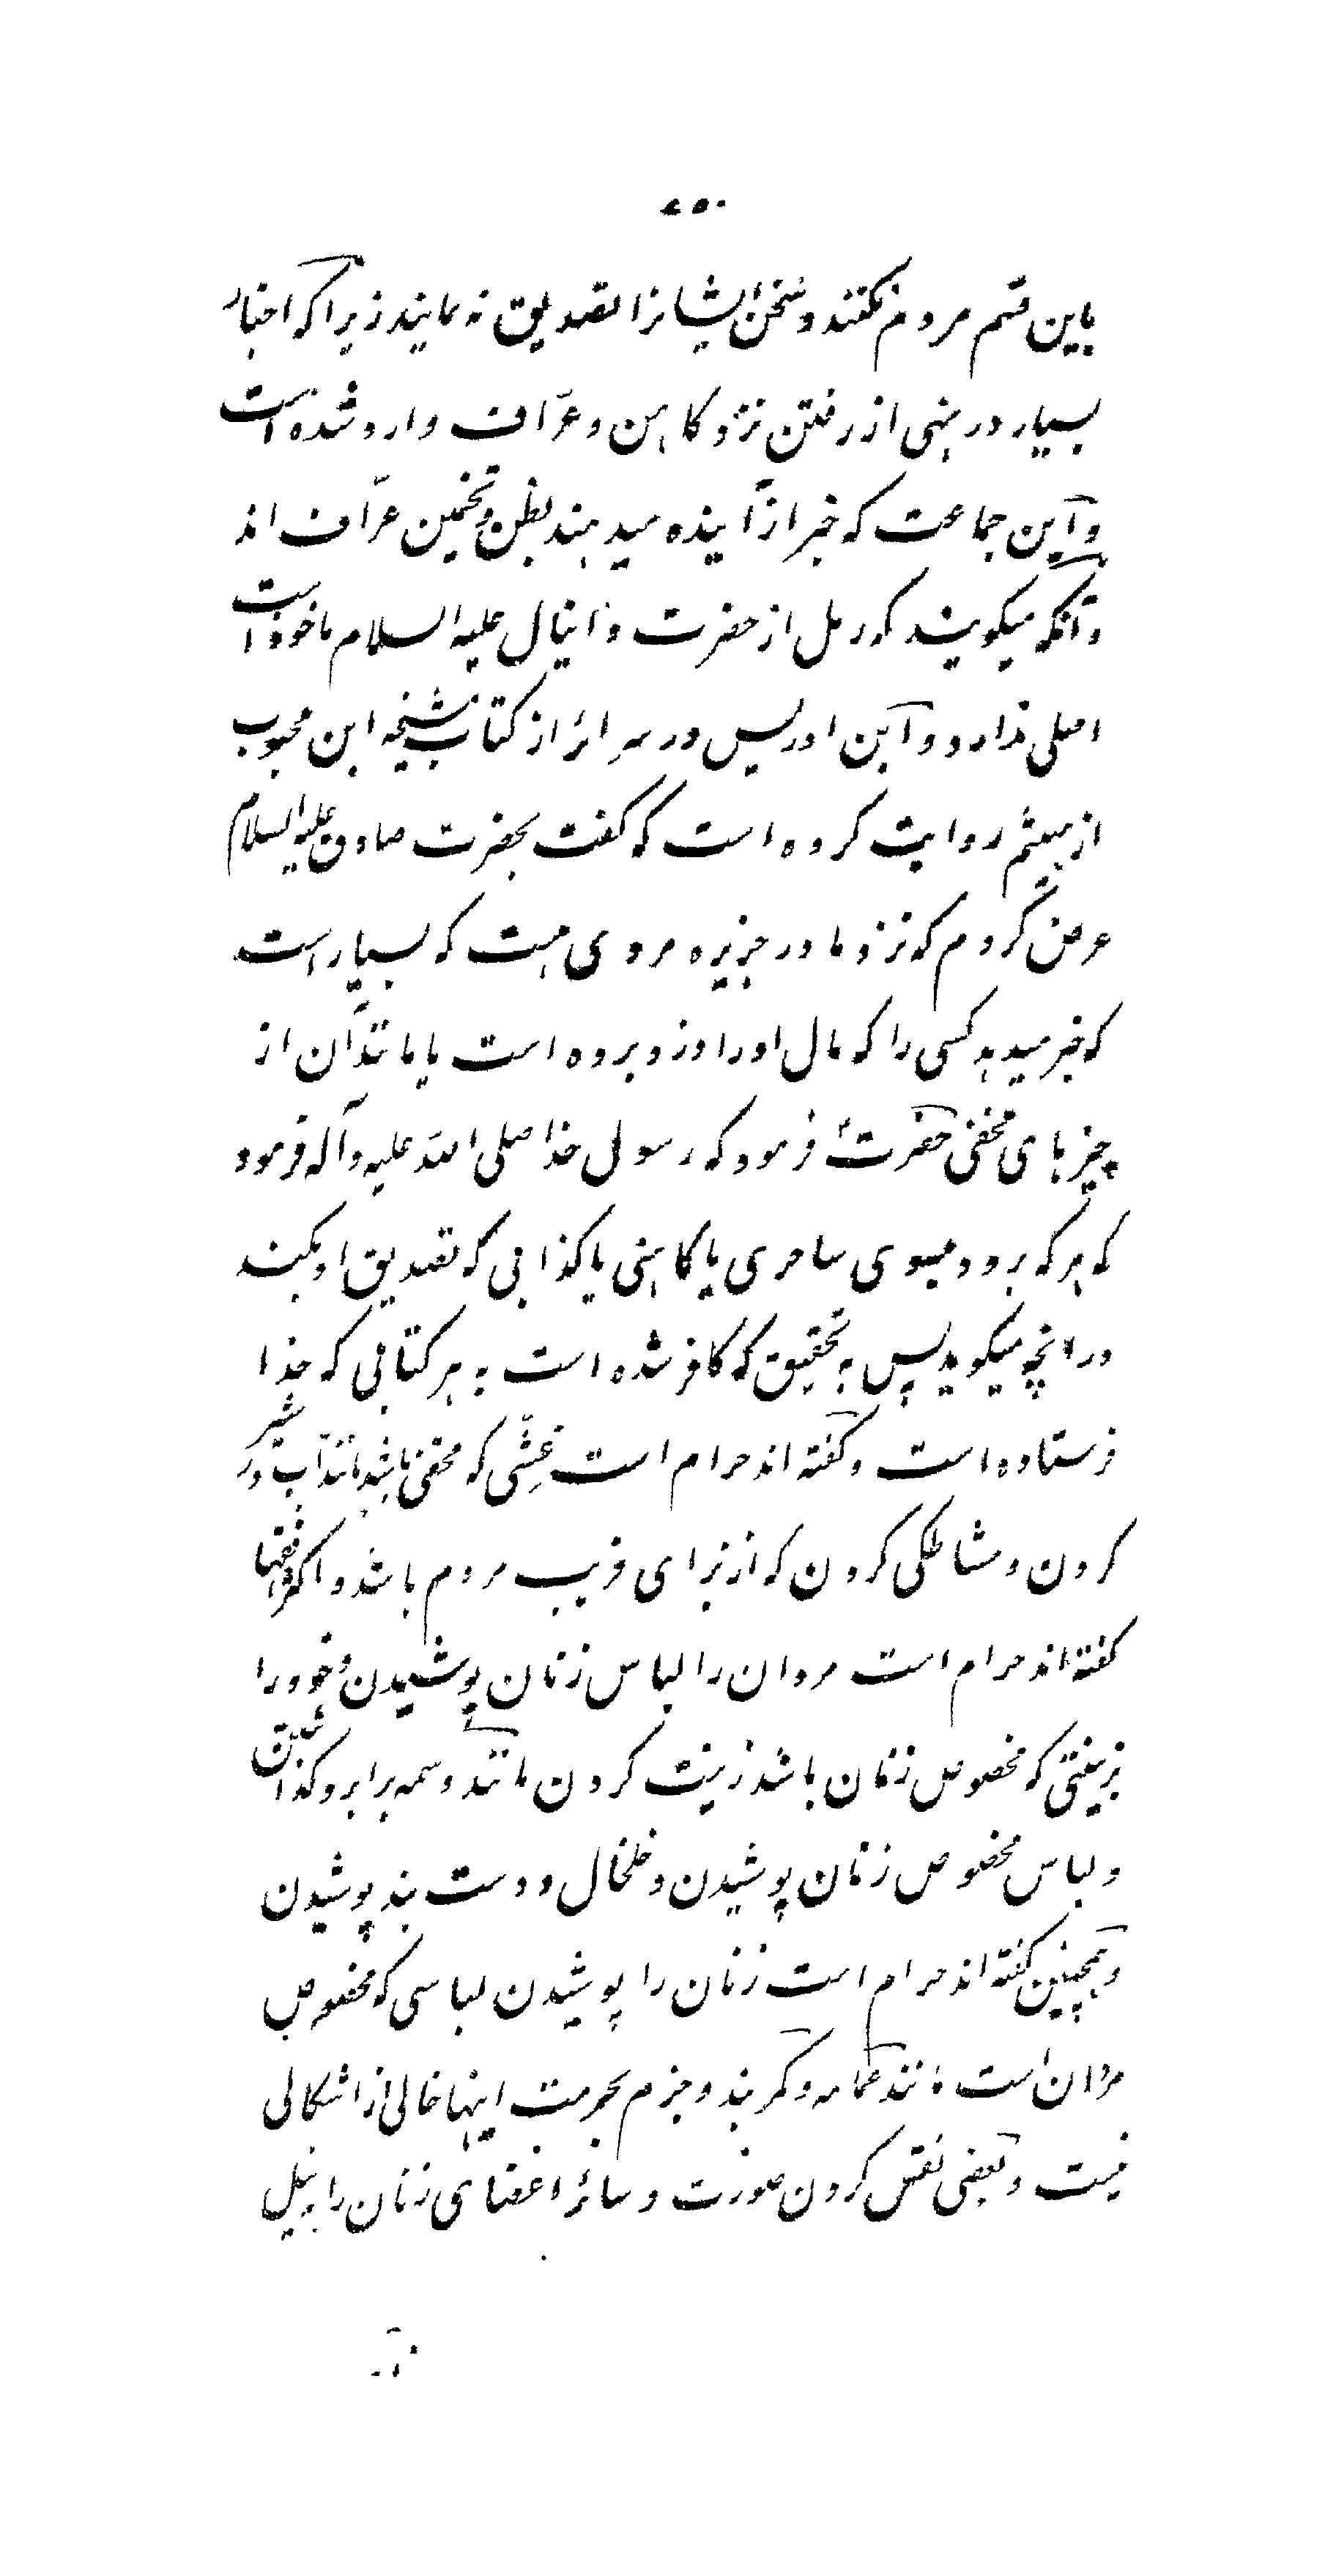 ۲۵۰
باین قسم مردم نکنند و سخن ایشانرا تصدیق نه نمایند زیرا که اخبار
بسیار در نهی از رفتن نزد کاهن و عرّاف وارد شده است
و این جماعت که خبر از آینده میدهند بظن و تخمین عرّاف اند
و آنکه میکویند که رمل از حضرت دانیال علیه السلام ماخوذ است
اصلی ندارد و ابن ادریس در سرائر از کتاب مشیخه ابن محبوب
از هیثم روایت کرده است که کفت بحضرت صادق علیه السلام
عرض کردم که نزد ما در جزیره مردی هست که بسیار است
که خبر میدهد کسی را که مال او را دزد برده است یا مانند آن از
چیزهای مخفی حضرت فرمود که رسول خدا صلی الله علیه و آله فرمود
که هر که برود بسوی ساحری یا کاهنی یا کذابی که تصدیق او بکند
در آنچه میکوید پس به تحقیق که کافر شده است به هر کتابی که خدا
فرستاده است و کفته اند حرام است غِشّی که مخفی باشد مانند آب در شیر
کردن و مشاطکی کردن که از برای فریب مردم باشد و اکثر فقها
کفته اند حرام است مردان را لباس زنان پوشیدن و خود را
بزینتی که مخصوص زنان باشد زینت کردن مانند وسمه بر ابرو کذاشتن
و لباس مخصوص زنان پوشیدن و خلخال و دست بند پوشیدن
و همچنین کفته اند حرام است زنان را پوشیدن لباسی که مخصوص
مردان است مانند عمامه و کمر بند و جزم بحرمت اینها خالی از اشکالی
نیست و بعضی نقش کردن صورت و سائر اعضای زنان را بنیل